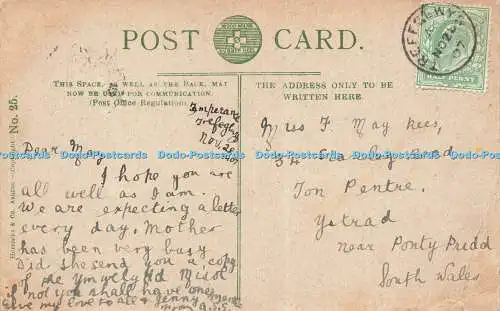 POST CARD.
THIS SPACE, AS WELL AS THE BACK, MAY
NOW BE USED FOR COMMUNICATION.
(Post Office Regulation).
THE ADDRESS ONLY TO BE
WRITTEN HERE.
No. 25.
HALF PENNY
Nov. 26
Dear May
I hope you are
all well as I am.
We are expecting a letter
every day. Mother
has been very busy
Did she send you a copy
of the
if not you shall have one
Give my love to all &
Miss F. May Rees,
34 Road
Ton Pentre.
Ystrad
near Ponty Pridd
South Wales
Dodo-Postcards Dodo-Postcards Dodo-Postcards Dodo-Postcards Dodo-Postcards